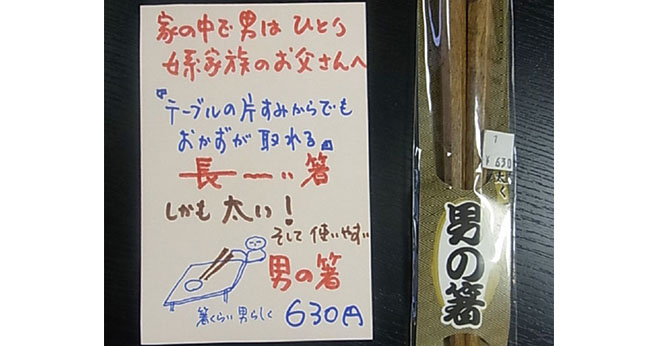 家の中で男は ひとり
女系家族のお父さんへ
『テーブルの片すみからでも
おかずが取れる』
長ーーい 箸
しかも 太い!
そして 使いやすい
男の箸
箸くらい 男らしく 630円
¥630
男の箸